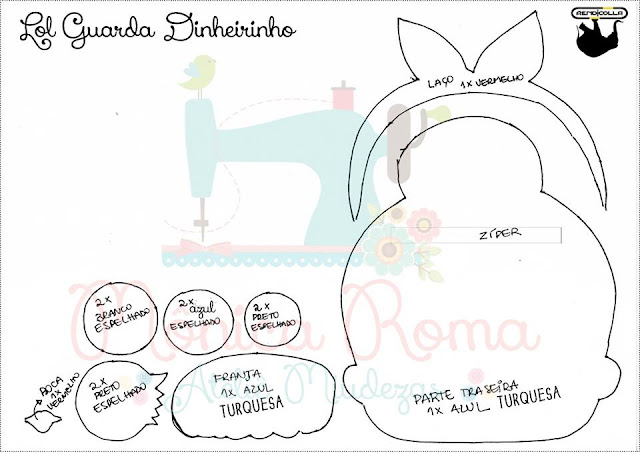 Lol Guarda Dinheirinho
REMO|COLLA
LAÇO 1X VERMELHO
ZÍPER
2X
BRANCO
ESPELHADO
2X
azul
ESPELHADO
2X
PRETO
ESPELHADO
Mônica Roma
BOCA
1X
VERMELHO
2X
PRETO
ESPELHADO
FRANJA
1X AZUL
TURQUESA
Mudezas
PARTE TRASEIRA
1X AZUL TURQUESA